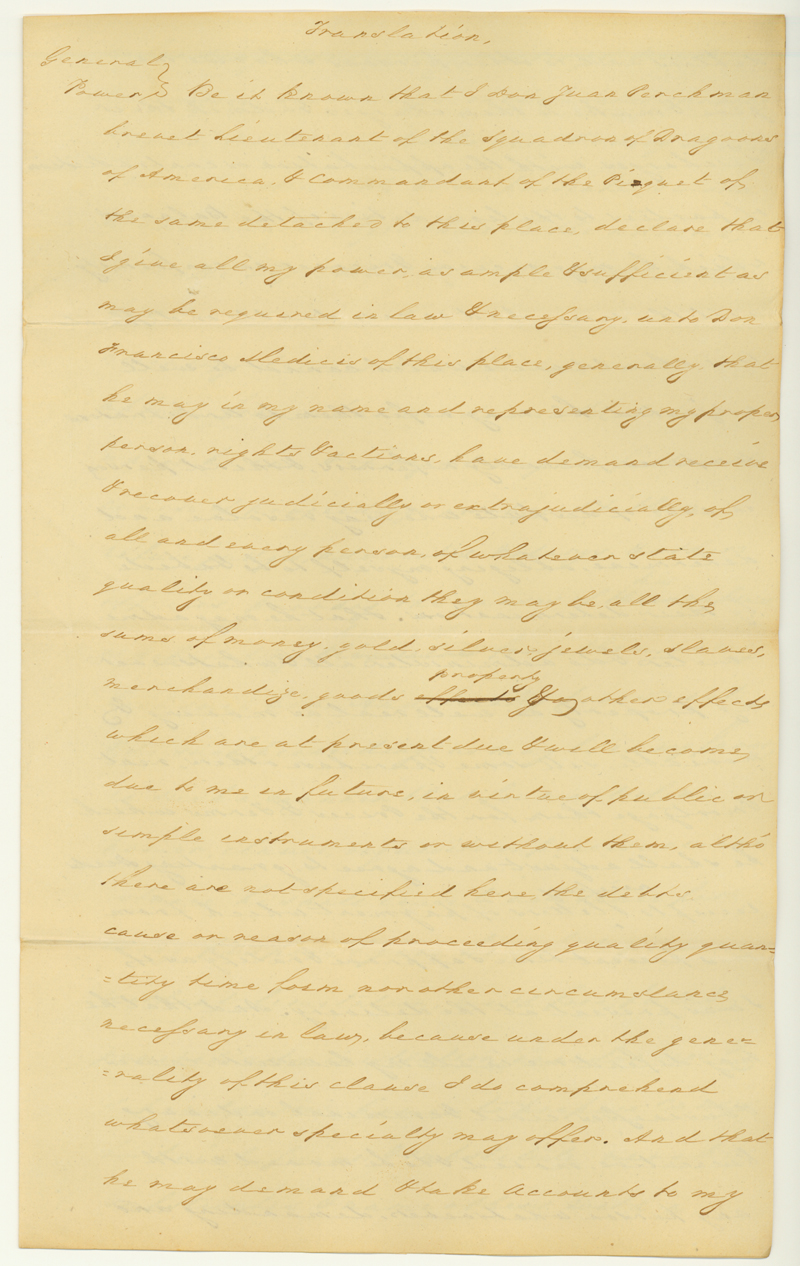 Translation.
General
Power } Be it known that I Don Juan Perchman
brevet Lieutenant of the Squadron of Dragoons
of America, & Commandant of the Piquet of
the same detached to this place, declare that
I give all my power, as ample & sufficient as
may be required in law & necessary, unto Don
Francisco Medicis of this place, generally, that
he may in my name and representing my proper
person, rights & actions, have demand receive
& recover judicially or extrajudicially, of
all and every person, of whatever state
quality or condition they may be, all the
sums of money, gold, silver, jewels, slaves,
property
merchandize, goods effects & other effects
which are at present due & will become
due to me in future, in virtue of public or
simple instruments or without them, altho'
there are not specified here the debts
cause or reason of proceeding quality quan=
=tity time form nor other circumstance
necessary in law, because under the gene=
=rality of this clause I do comprehend
whatsoever specialty may offer. And that
he may demand & take Accounts to my